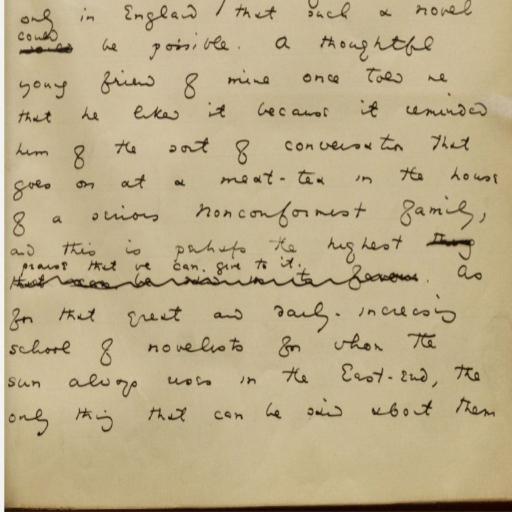 only in England that such a novel
could
would be possible. A thoughtful
young friend of mine once told me
that he liked it because it reminded
him of the sort of conversation that
goes on at a meat-tea in the house
of a serious Nonconformist family,
and this is perhaps the highest thing
praise that we can give to it.
that can be said in its favour. As
for that great and daily-increasing
school of novelists for whom the
sun always rises in the East-End, the
only thing that can be said about them